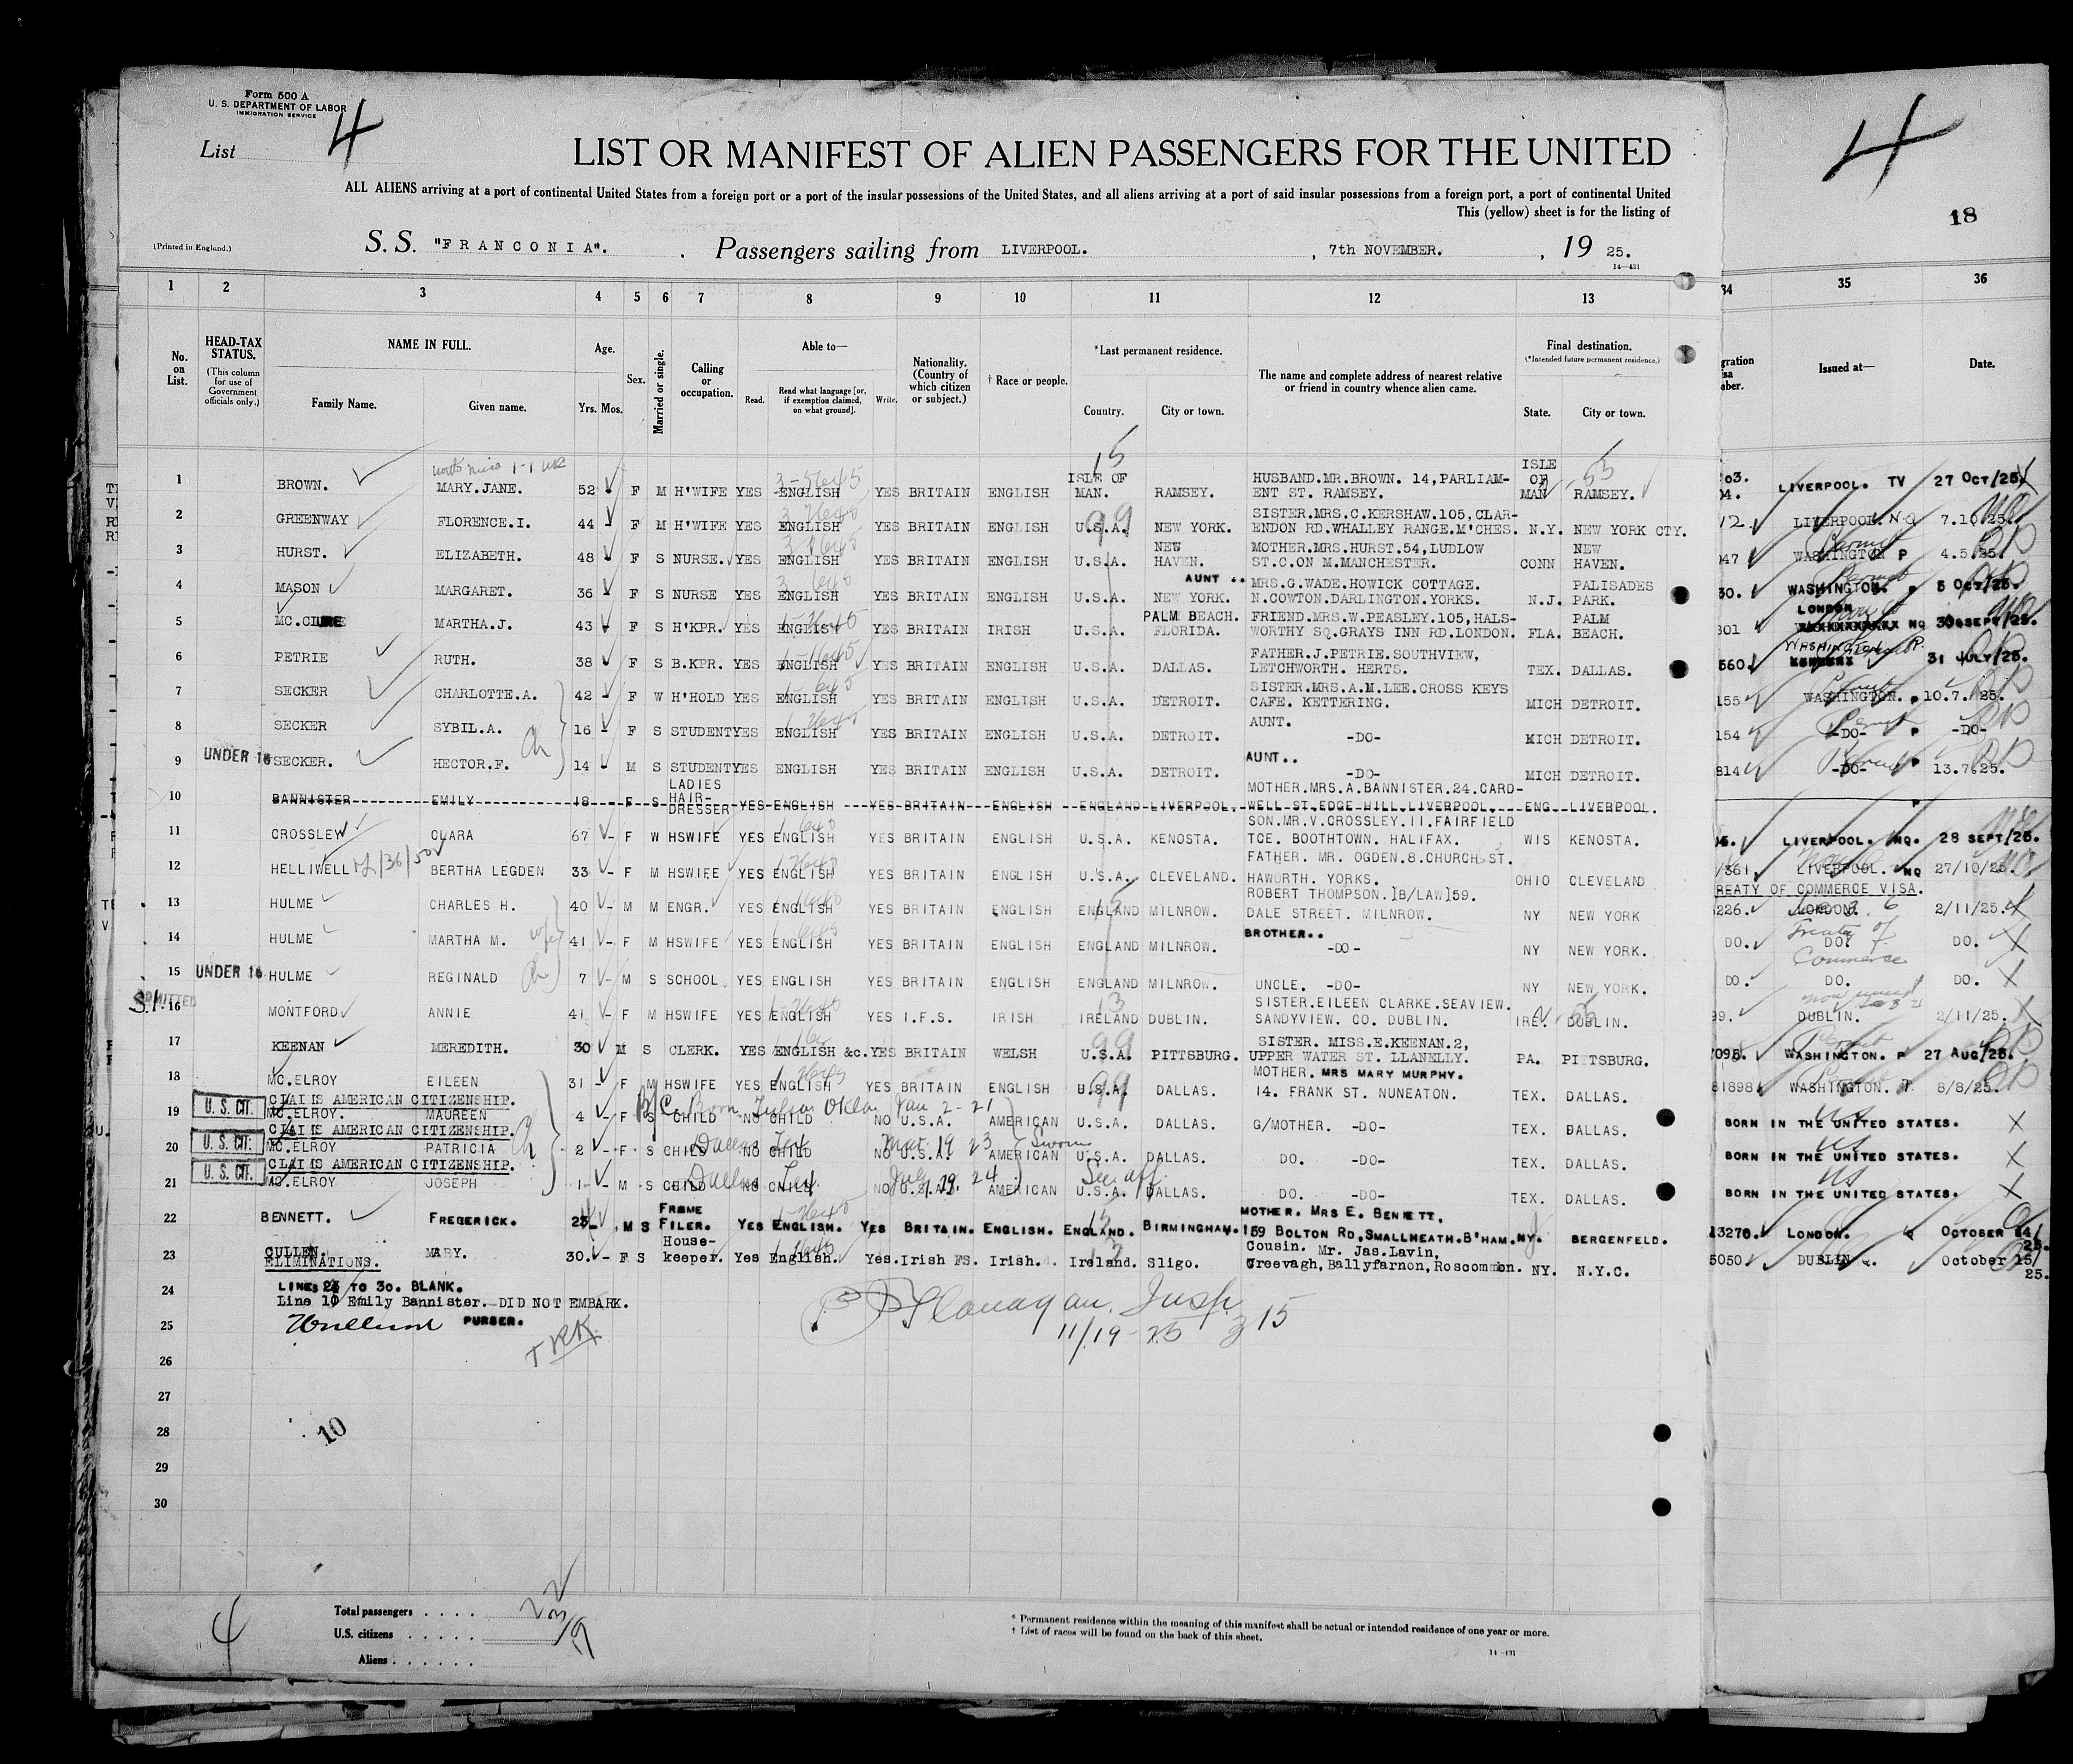 Form 500 A
U. S. DEPARTMENT OF LABOR
IMMIGRATION SERVICE
List 4
LIST OR MANIFEST OF ALIEN PASSENGERS FOR THE UNITED
ALL ALIENS arriving at a port of continental United States from a foreign port or a port of the insular possessions of the United States, and all aliens arriving at a port of said insular possessions from a foreign port, a port of continental United
This (yellow) sheet is for the listing of
(Printed in England.)
S. S. "FRANCONIA". Passengers sailing from LIVERPOOL. , 7th NOVEMBER. , 19 25.
14—431
4
18
1 2 3 4 5 6 7 8 9 10 11 12 13 34 35 36
No. on List.
HEAD-TAX STATUS.
(This column for use of Government officials only.)
NAME IN FULL.
Family Name. Given name.
Age.
Yrs. Mos.
Sex.
Married or single.
Calling or occupation.
Able to—
Read. Read what language [or, if exemption claimed, on what ground]. Write.
Nationality. (Country of which citizen or subject.)
† Race or people.
*Last permanent residence.
Country. City or town.
The name and complete address of nearest relative or friend in country whence alien came.
Final destination.
(*Intended future permanent residence.)
State. City or town.
Issued at— Date.
1 BROWN. MARY.JANE. 52 F M H'WIFE YES ENGLISH YES BRITAIN ENGLISH ISLE OF MAN. RAMSEY. HUSBAND.MR.BROWN. 14,PARLIAM-ENT ST. RAMSEY. ISLE OF MAN RAMSEY. LIVERPOOL. TV 27 OCT/25.
2 GREENWAY FLORENCE.I. 44 - F M H'WIFE YES ENGLISH YES BRITAIN ENGLISH U.S.A. NEW YORK. SISTER.MRS.C.KERSHAW.105,CLAR-ENDON RD.WHALLEY RANGE.M'CHES. N.Y. NEW YORK CTY. LIVERPOOL. NQ 7.10.25.
3 HURST. ELIZABETH. 48 - F S NURSE. YES ENGLISH YES BRITAIN ENGLISH U.S.A. NEW HAVEN. MOTHER.MRS.HURST.54,LUDLOW ST.C.ON M.MANCHESTER. CONN NEW HAVEN. 947 WASHINGTON P 4.5.25.
4 MASON MARGARET. 36 - F S NURSE YES ENGLISH YES BRITAIN ENGLISH U.S.A. NEW YORK. AUNT .. MRS.G.WADE.HOWICK COTTAGE. N.COWTON.DARLINGTON.YORKS. N.J. PALISADES PARK. 30. WASHINGTON. P 5 OCT/25.
5 MC.CLURE MARTHA.J. 43 F S H'KPR. YES ENGLISH YES BRITAIN IRISH U.S.A. PALM BEACH. FLORIDA. FRIEND.MRS.W.PEASLEY.105,HALS-WORTHY SQ.GRAYS INN RD.LONDON. FLA. PALM BEACH. 301 LONDON NQ 30 SEPT/25.
6 PETRIE RUTH. 38 F S B.KPR. YES ENGLISH YES BRITAIN ENGLISH U.S.A. DALLAS. FATHER.J.PETRIE.SOUTHVIEW, LETCHWORTH. HERTS. TEX. DALLAS. 560. WASHINGTON P. 31 JULY/25.
7 SECKER CHARLOTTE.A. 42 - F W H'HOLD YES ENGLISH YES BRITAIN ENGLISH U.S.A. DETROIT. SISTER.MRS.A.M.LEE.CROSS KEYS CAFE. KETTERING. MICH DETROIT. 155 WASHINGTON. P 10.7.25.
8 SECKER SYBIL.A. 16 - F S STUDENT YES ENGLISH YES BRITAIN ENGLISH U.S.A. DETROIT. AUNT. -DO- MICH DETROIT. 154 -DO- P -DO-
9 UNDER 16 SECKER. HECTOR.F. 14 - M S STUDENT YES ENGLISH YES BRITAIN ENGLISH U.S.A. DETROIT. AUNT.. -DO- MICH DETROIT. 814 -DO- P 13.7.25.
10 BANNISTER EMILY 18 - F S LADIES HAIR-DRESSER YES ENGLISH YES BRITAIN ENGLISH ENGLAND LIVERPOOL. MOTHER.MRS.A.BANNISTER.24.CARD-WELL ST.EDGE HILL.LIVERPOOL. ENG. LIVERPOOL.
11 CROSSLEY CLARA 67 - F W HSWIFE YES ENGLISH YES BRITAIN ENGLISH U.S.A. KENOSTA. SON.MR.V.CROSSLEY.11.FAIRFIELD TCE. BOOTHTOWN. HALIFAX. WIS KENOSTA. LIVERPOOL. NQ. 28 SEPT/25.
12 HELLIWELL BERTHA LEGDEN 33 - F M HSWIFE YES ENGLISH YES BRITAIN ENGLISH U.S.A. CLEVELAND. FATHER. MR. OGDEN.8.CHURCH ST. HAWORTH. YORKS. OHIO CLEVELAND 361 LIVERPOOL. NQ 27/10/25.
TREATY OF COMMERCE VISA.
13 HULME CHARLES H. 40 - M M ENGR. YES ENGLISH YES BRITAIN ENGLISH ENGLAND MILNROW. ROBERT THOMPSON.]B/LAW]59. DALE STREET. MILNROW. NY NEW YORK 226. LONDON. 2/11/25.
14 HULME MARTHA M. 41 - F M HSWIFE YES ENGLISH YES BRITAIN ENGLISH ENGLAND MILNROW. BROTHER.. -DO- NY NEW YORK. DO. DO. DO.
Treaty of Commerce
15 UNDER 16 HULME REGINALD 7 - M S SCHOOL YES ENGLISH YES BRITAIN ENGLISH ENGLAND MILNROW. UNCLE. -DO- NY NEW YORK. DO. DO. DO.
S.I. ADMITTED
16 MONTFORD ANNIE 41 - F M HSWIFE YES ENGLISH YES I.F.S. IRISH IRELAND DUBLIN. SISTER.EILEEN CLARKE.SEAVIEW. SANDYVIEW. CO. DUBLIN. IRE. DUBLIN. 99. DUBLIN. 2/11/25.
17 KEENAN MEREDITH. 30 M S CLERK. YES ENGLISH &c. YES BRITAIN WELSH U.S.A. PITTSBURG. SISTER. MISS.E.KEENAN.2, UPPER WATER ST. LLANELLY. PA. PITTSBURG. 7095. WASHINGTON. P 27 AUG/25.
18 MC.ELROY EILEEN 31 - F M HSWIFE YES ENGLISH YES BRITAIN ENGLISH U.S.A. DALLAS. MOTHER. MRS MARY MURPHY. 14. FRANK ST. NUNEATON. TEX. DALLAS. 81898 WASHINGTON. P. 8/8/25.
U.S. CIT. CLAIMS AMERICAN CITIZENSHIP.
B/C Born Tulsa Okla Jan 2-21
19 MC.ELROY. MAUREEN 4 - F S CHILD NO CHILD NO U.S.A. AMERICAN U.S.A. DALLAS. G/MOTHER. -DO- TEX. DALLAS. BORN IN THE UNITED STATES. US
U.S. CIT. CLAIMS AMERICAN CITIZENSHIP.
Dallas Tex Mar 19 23 Sworn
20 MC.ELROY PATRICIA 2 - F S CHILD NO CHILD NO U.S.A. AMERICAN U.S.A. DALLAS. DO. -DO- TEX. DALLAS. BORN IN THE UNITED STATES. US
U.S. CIT. CLAIMS AMERICAN CITIZENSHIP.
Dallas Tex. July 19, 24 See aff.
21 MC.ELROY JOSEPH 1 - M S CHILD NO CHILD NO U.S.A. AMERICAN U.S.A. DALLAS. DO. -DO- TEX. DALLAS. BORN IN THE UNITED STATES. US
22 BENNETT. FREDERICK. M S FRAME FILER. YES ENGLISH. YES BRITAIN. ENGLISH. ENGLAND. BIRMINGHAM. MOTHER. MRS E. BENNETT, 159 BOLTON RD,SMALLHEATH.B'HAM. BERGENFELD. 13270. LONDON. Q OCTOBER 14/25.
23 CULLEN. MARY. 30. - F S House-keeper. Yes English. Yes. Irish FS. Irish. Ireland. Sligo. Cousin. Mr. Jas.Lavin, Creevagh,Ballyfarnon,Roscommon. NY. N.Y.C. 5050 DUBLIN Q. October 15/25.
ELIMINATIONS.
24 LINES TO 30. BLANK.
Line 10 Emily Bannister. DID NOT EMBARK.
25 PURSER.
Flanagan. Insp
11/19-25 315
26
27
28
10
29
30
4
Total passengers . . . .
U.S. citizens . . . . .
Aliens . . . . . .
* Permanent residence within the meaning of this manifest shall be actual or intended residence of one year or more.
† List of races will be found on the back of this sheet.
14—431